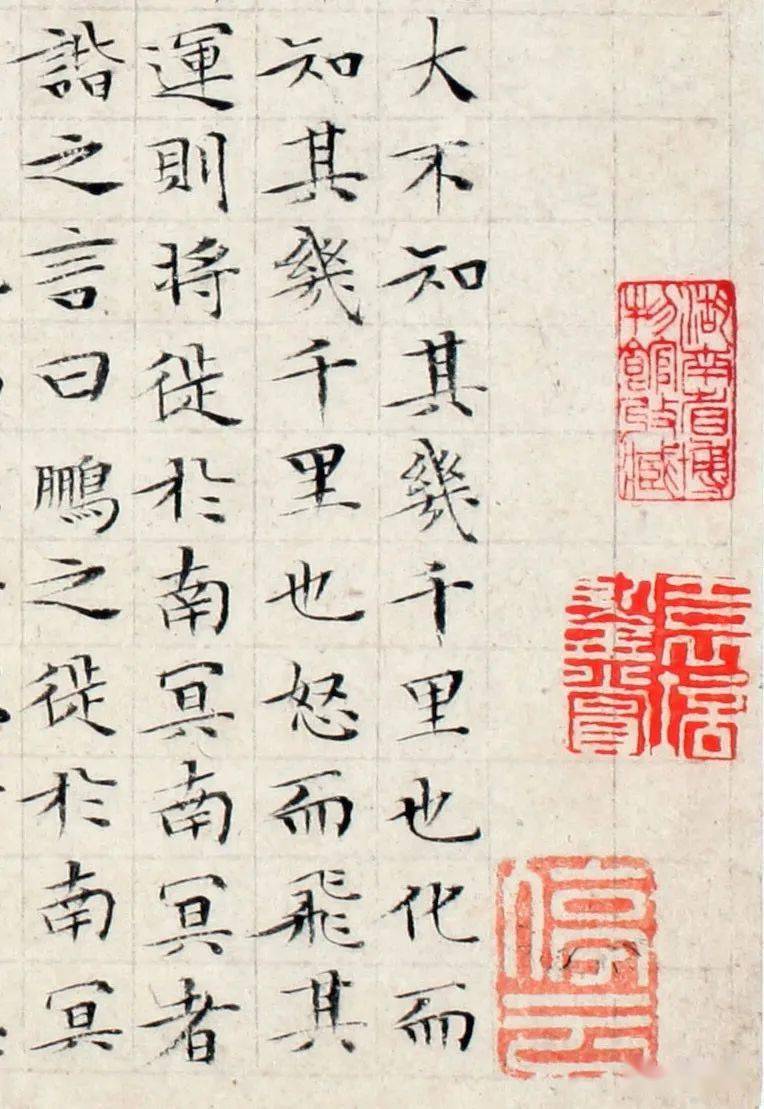 湖南省博
物館收藏
停云
大不知其幾千里也化而
知其幾千里也怒而飛其
運則將徙於南冥南冥者
諧之言曰鵬之徙於南冥